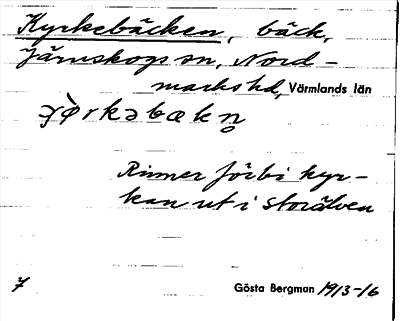 Kyrkebäcken, bäck,
Järnskogs sn, Nord-
marks hd, Värmlands län
Rinner förbi kyr-
kan ut i storälven
7 Gösta Bergman 1913-16